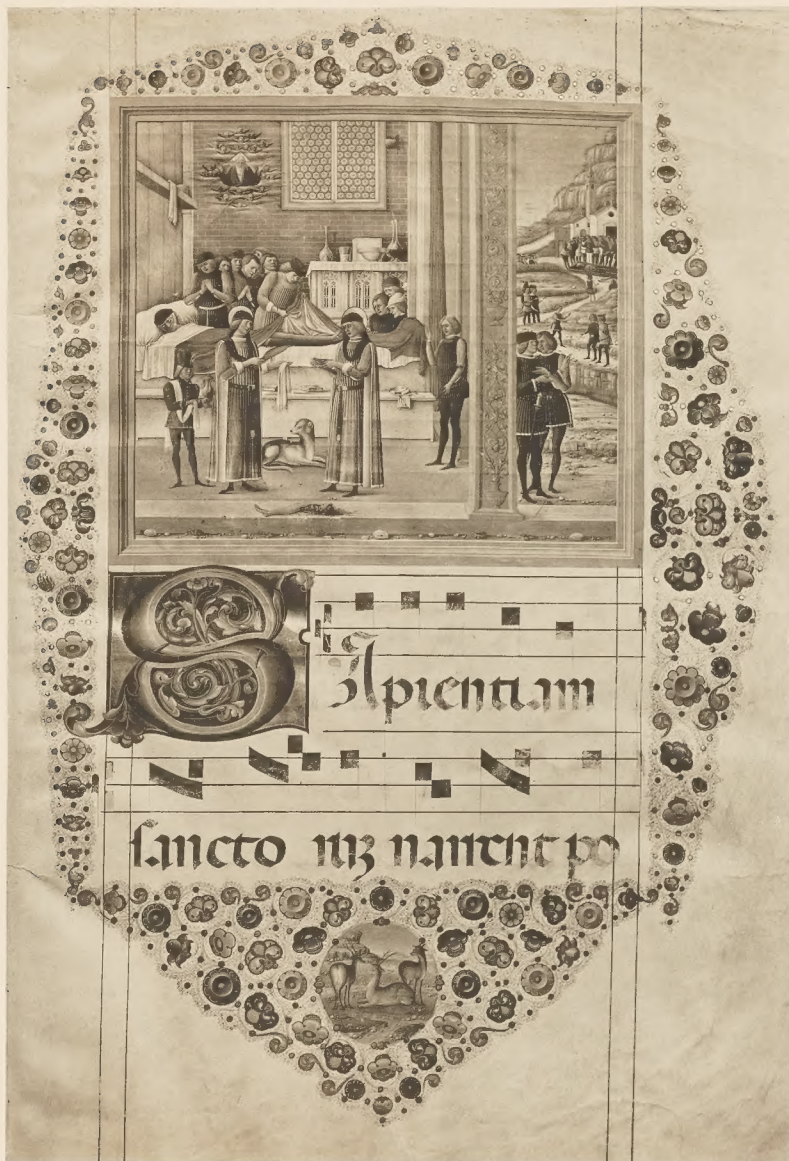 SApientiam
sancto ruʒ narrent po